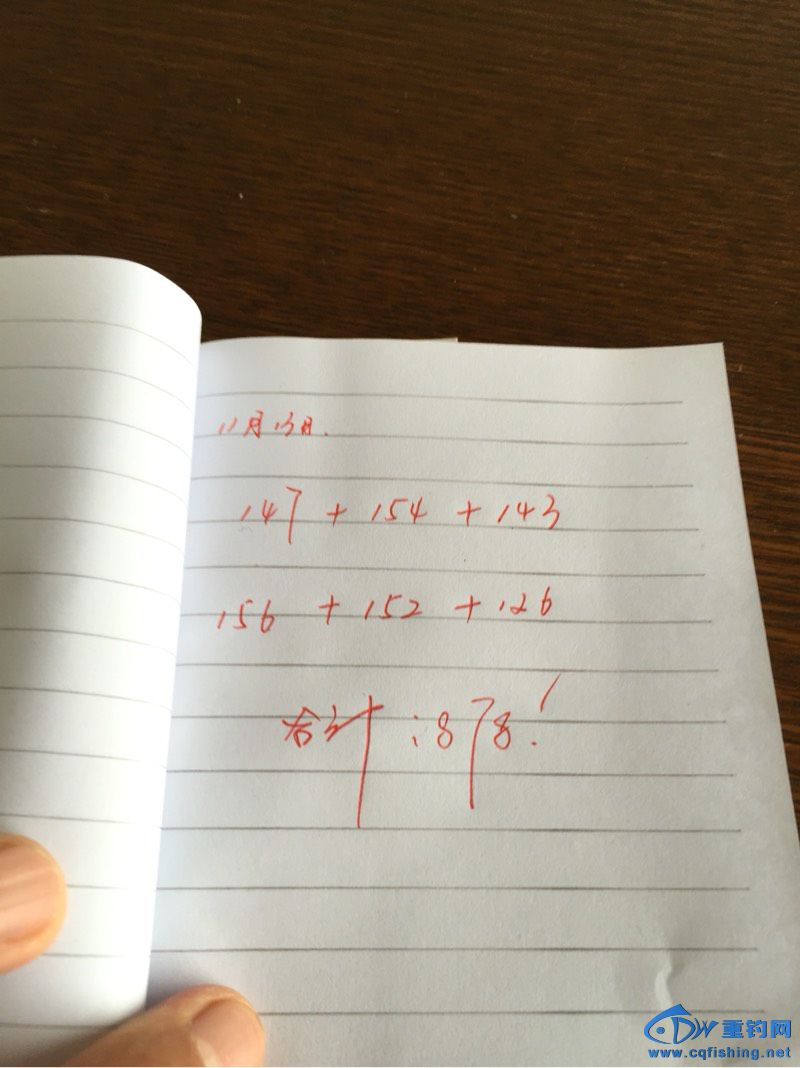 11月13日.
147 + 154 + 143
156 + 152 + 126
合计:878!
DW重钓网
www.cqfishing.net